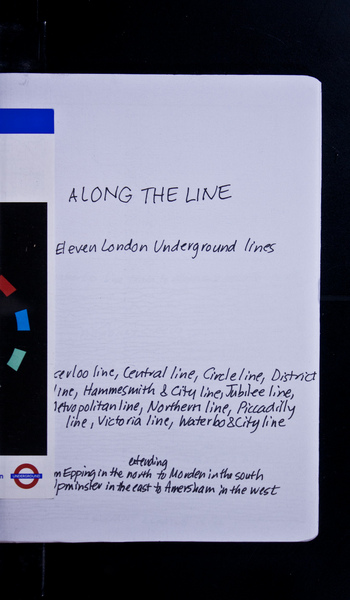 ALONG THE LINE
Eleven London Underground lines
cerloo line, Central line, Circle line, District
line, Hammersmith & City line, Jubilee line,
Metropolitan line, Northern line, Piccadilly
line, Victoria line, Waterloo & City line
extending
m Epping in the north to Morden in the south
Upminster in the east to Amersham in the west
UNDERGROUND